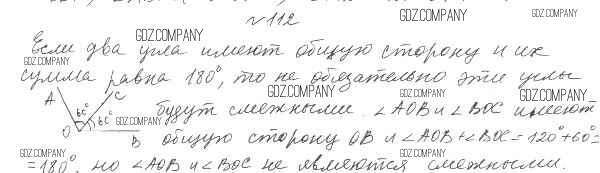 №112
Если два угла имеют общую сторону и их
сумма равна 180°, то не обязательно эти углы
A C 60° 60° O B
будут смежными. ∠AOB и ∠BOC имеют
общую сторону OB и ∠AOB+∠BOC=120°+60°=
=180°, но ∠AOB и ∠BOC не являются смежными.
GDZ.COMPANY
GDZ.COMPANY
GDZ.COMPANY
GDZ.COMPANY
GDZ.COMPANY
GDZ.COMPANY
GDZ.COMPANY
GDZ.COMPANY
GDZ.COMPANY
GDZ.COMPANY